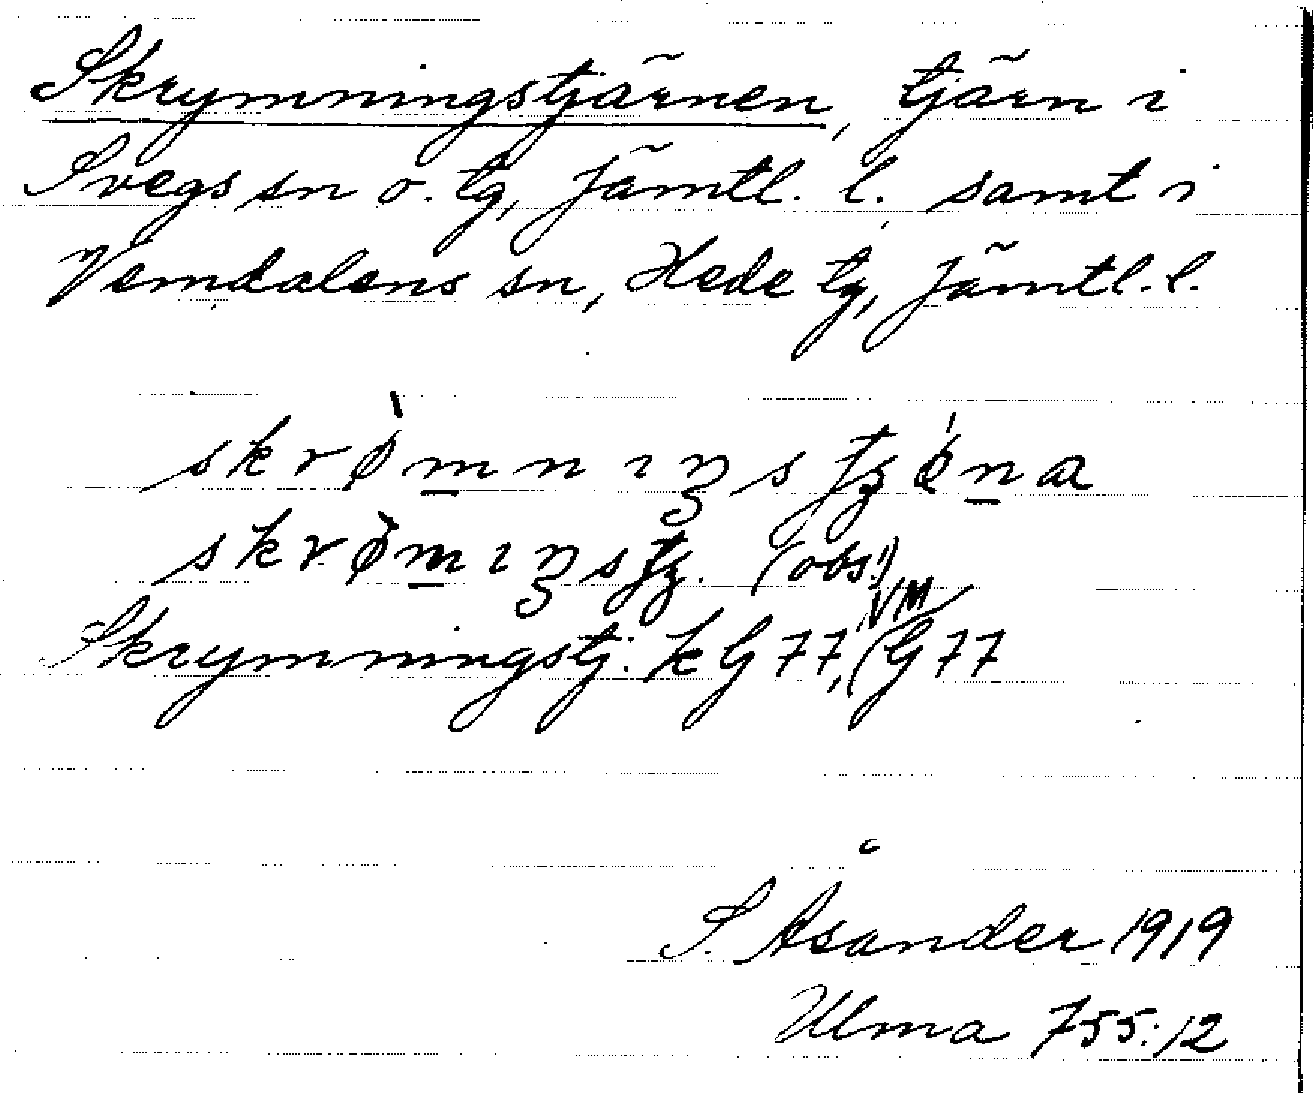 Skrymningstjärnen, tjärn i
Svegs sn o. tg, Jämtl. l. samt i
Vemdalens sn, Hede tg, Jämtl. l.
skrømnıŋs
skrømıŋs (obs!)
VM
Skrymningstj. k G 77, (G 77
S. Åsander 1919
Ulma 755:12